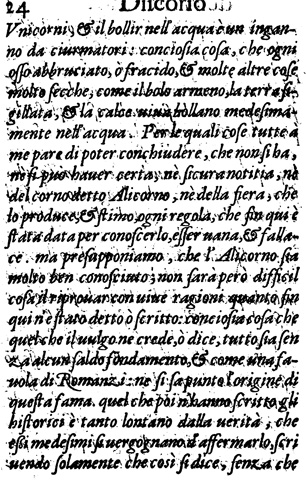 24 Discorso
Vnicorni, & il bollir nell'acqua è un ingan-
no da ciurmatori: conciosia cosa, che ogni
osso abbruciato, o fracido, & molte altre cose
molto secche, come il bolo armeno, la terra si-
gillata, & la calce uiua bollano medesima-
mente nell'acqua. Per le quali cose tutte a
me pare di poter conchiudere, che non si ha,
ne si può hauer certa, nè sicura notitia, nè
del corno detto Alicorno, nè della fiera, che
lo produce, & stimo ogni regola, che fin qui è
stata data per conoscerlo, esser uana, & falla-
ce. ma presapponiamo, che l'Alicorno sia
molto ben conosciuto; non sarà però difficil
cosa il riprouar con uiue ragioni quanto fin
qui n'è stato detto ò scritto: conciosia cosa che
quel che il uulgo ne crede, ò dice, tutto sia sen
za alcun saldo fondamento, & come una fa-
uola di Romanzi: ne si sa punto l'origine di
questa fama. quel che poi n'hanno scritto gli
historici è tanto lontano dalla verità, che
essi medesimi si uergognano d'affermarlo, scri
uendo solamente che così si dice, senza che